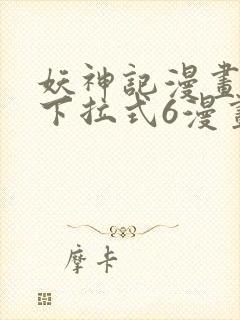 妖神記漫畫
下拉式6漫畫
摩卡